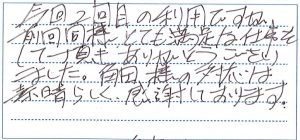 今回2回目の利用ですが、
前回同様、とても満足な仕事を
して頂き、ありがとうござい
ました。有田様の対応は
素晴らしく、感謝しております。